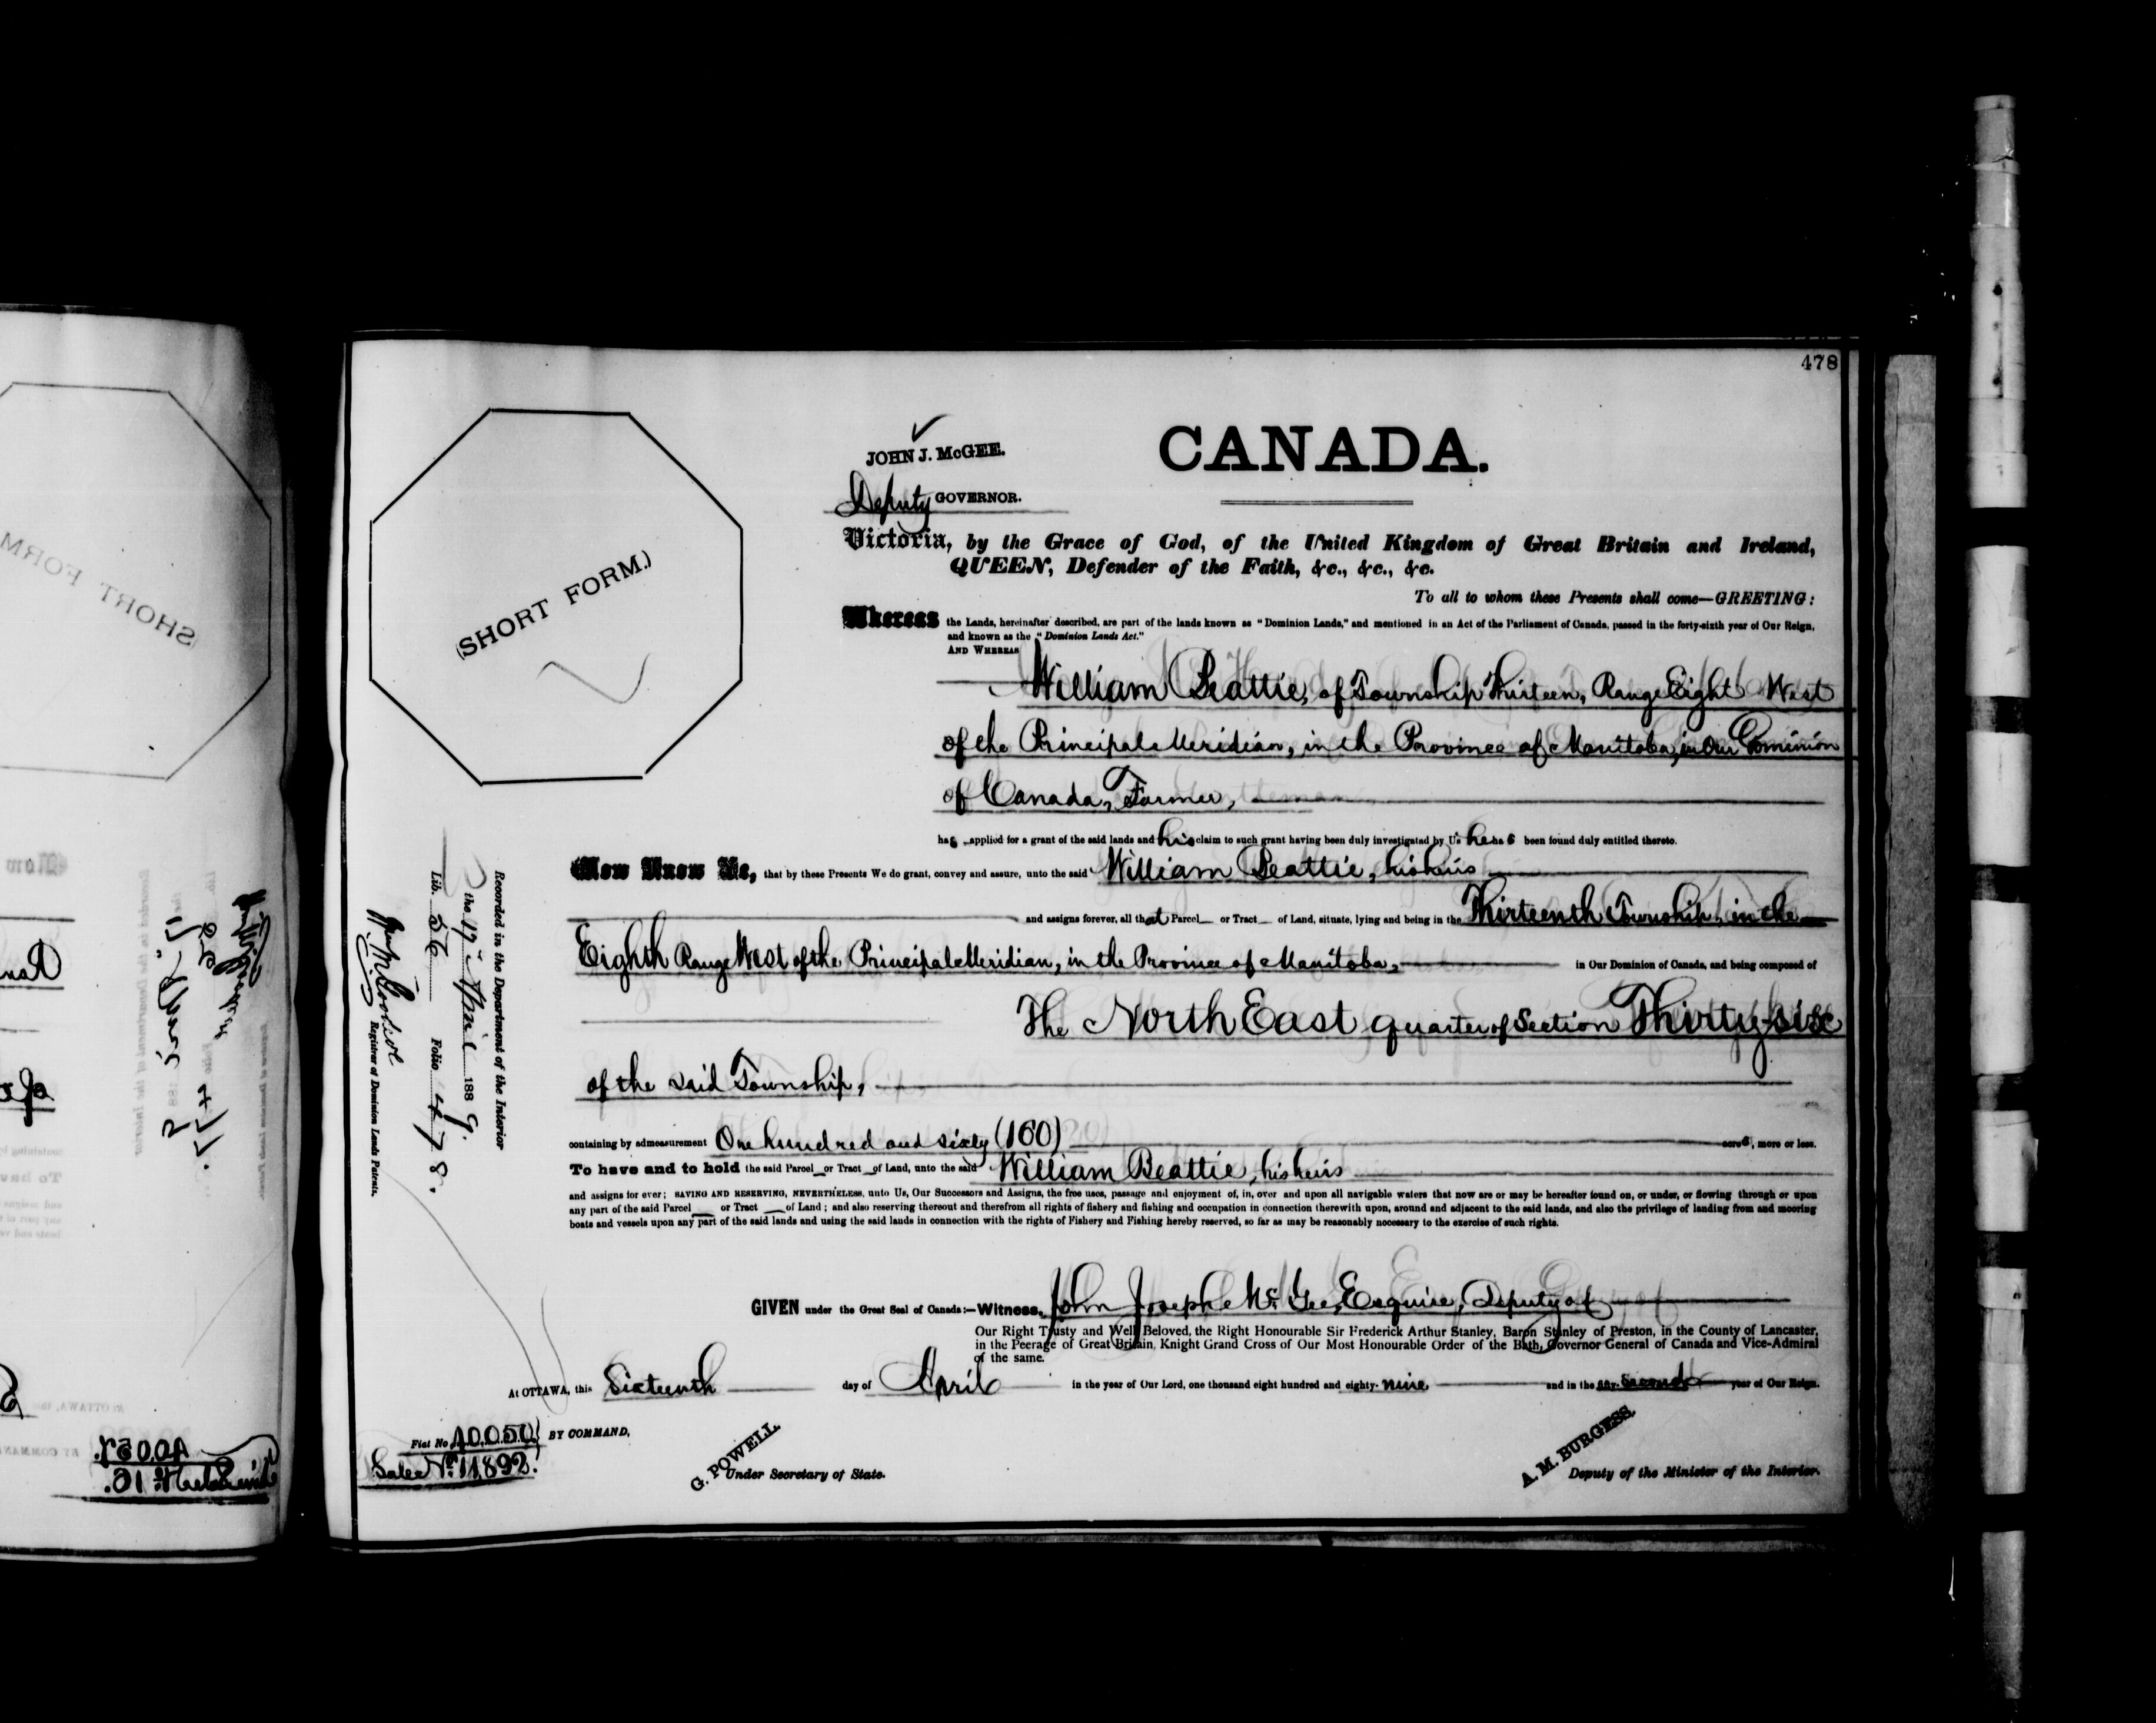 478
CANADA.
JOHN J. McGEE.
Deputy GOVERNOR.
(SHORT FORM.)
Victoria, by the Grace of God, of the United Kingdom of Great Britain and Ireland,
QUEEN, Defender of the Faith, &c., &c., &c.
To all to whom these Presents shall come—GREETING:
Whereas the Lands, hereinafter described, are part of the lands known as "Dominion Lands," and mentioned in an Act of the Parliament of Canada, passed in the forty-sixth year of Our Reign,
and known as the "Dominion Lands Act."
AND WHEREAS
William Beattie, of Township Thirteen, Range Eight West
of the Principal Meridian, in the Province of Manitoba, in Our Dominion
of Canada, Farmer,
has applied for a grant of the said lands and his claim to such grant having been duly investigated by Us he has been found duly entitled thereto.
Now Know Ye, that by these Presents We do grant, convey and assure, unto the said William Beattie, his heirs
and assigns forever, all that Parcel or Tract of Land, situate, lying and being in the Thirteenth Township, in the
Eighth Range West of the Principal Meridian, in the Province of Manitoba, in Our Dominion of Canada, and being composed of
The North East quarter of Section Thirty-six
of the said Township,
containing by admeasurement One hundred and sixty (160) acres, more or less.
To have and to hold the said Parcel or Tract of Land, unto the said William Beattie, his heirs
and assigns for ever; SAVING AND RESERVING, NEVERTHELESS, unto Us, Our Successors and Assigns, the free uses, passage and enjoyment of, in, over and upon all navigable waters that now are or may be hereafter found on, or under, or flowing through or upon
any part of the said Parcel or Tract of Land; and also reserving thereout and therefrom all rights of fishery and fishing and occupation in connection therewith upon, around and adjacent to the said lands, and also the privilege of landing from and mooring
boats and vessels upon any part of the said lands and using the said lands in connection with the rights of Fishery and Fishing hereby reserved, so far as may be reasonably necessary to the exercise of such rights.
GIVEN under the Great Seal of Canada:—Witness, John Joseph McGee, Esquire, Deputy of
Our Right Trusty and Well Beloved, the Right Honourable Sir Frederick Arthur Stanley, Baron Stanley of Preston, in the County of Lancaster,
in the Peerage of Great Britain, Knight Grand Cross of Our Most Honourable Order of the Bath, Governor General of Canada and Vice-Admiral
of the same.
At OTTAWA, this Sixteenth day of April in the year of Our Lord, one thousand eight hundred and eighty-nine and in the fifty-second year of Our Reign.
Fiat No. 40050 BY COMMAND,
Sale No. 11892.
G. POWELL
Under Secretary of State.
A. M. BURGESS,
Deputy of the Minister of the Interior.
Recorded in the Department of the Interior
the 17th April 1889.
Lib. 56 Folio 478.
Registrar of Dominion Lands Patents.